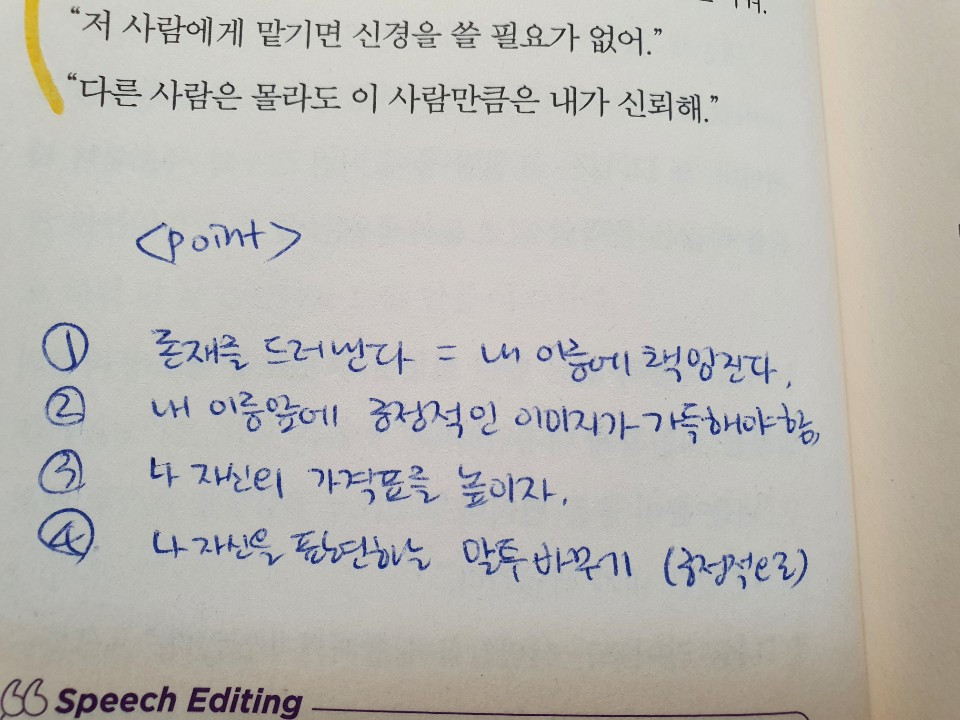 “저 사람에게 맡기면 신경을 쓸 필요가 없어.”
“다른 사람은 몰라도 이 사람만큼은 내가 신뢰해.”
<point>
① 존재를 드러낸다 = 내 이름에 책임진다.
② 내 이름앞에 긍정적인 이미지가 가득해야 함.
③ 나 자신의 가격표를 높이자.
④ 나 자신을 판단하는 말투 바꾸기 (긍정적으로)
Speech Editing